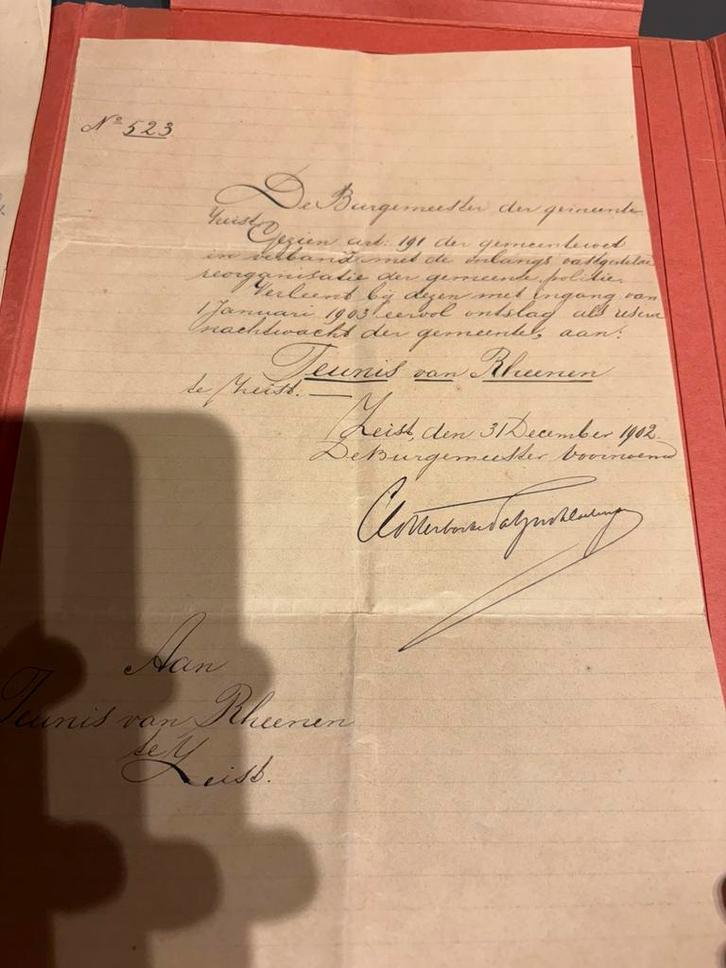 No 523
De Burgemeester der gemeente
Zeist.
Gezien art: 191 der gemeentewet
in verband met de onlangs vastgestelde
reorganisatie der gemeente politie.
Verleent bij dezen met ingang van
1 Januari 1903 eervol ontslag als reserve
nachtwacht der gemeente, aan:
Teunis van Rheenen
te Zeist. —
Zeist, den 31 December 1902.
De Burgemeester voornoemd
Aan
Teunis van Rheenen
te
Zeist.